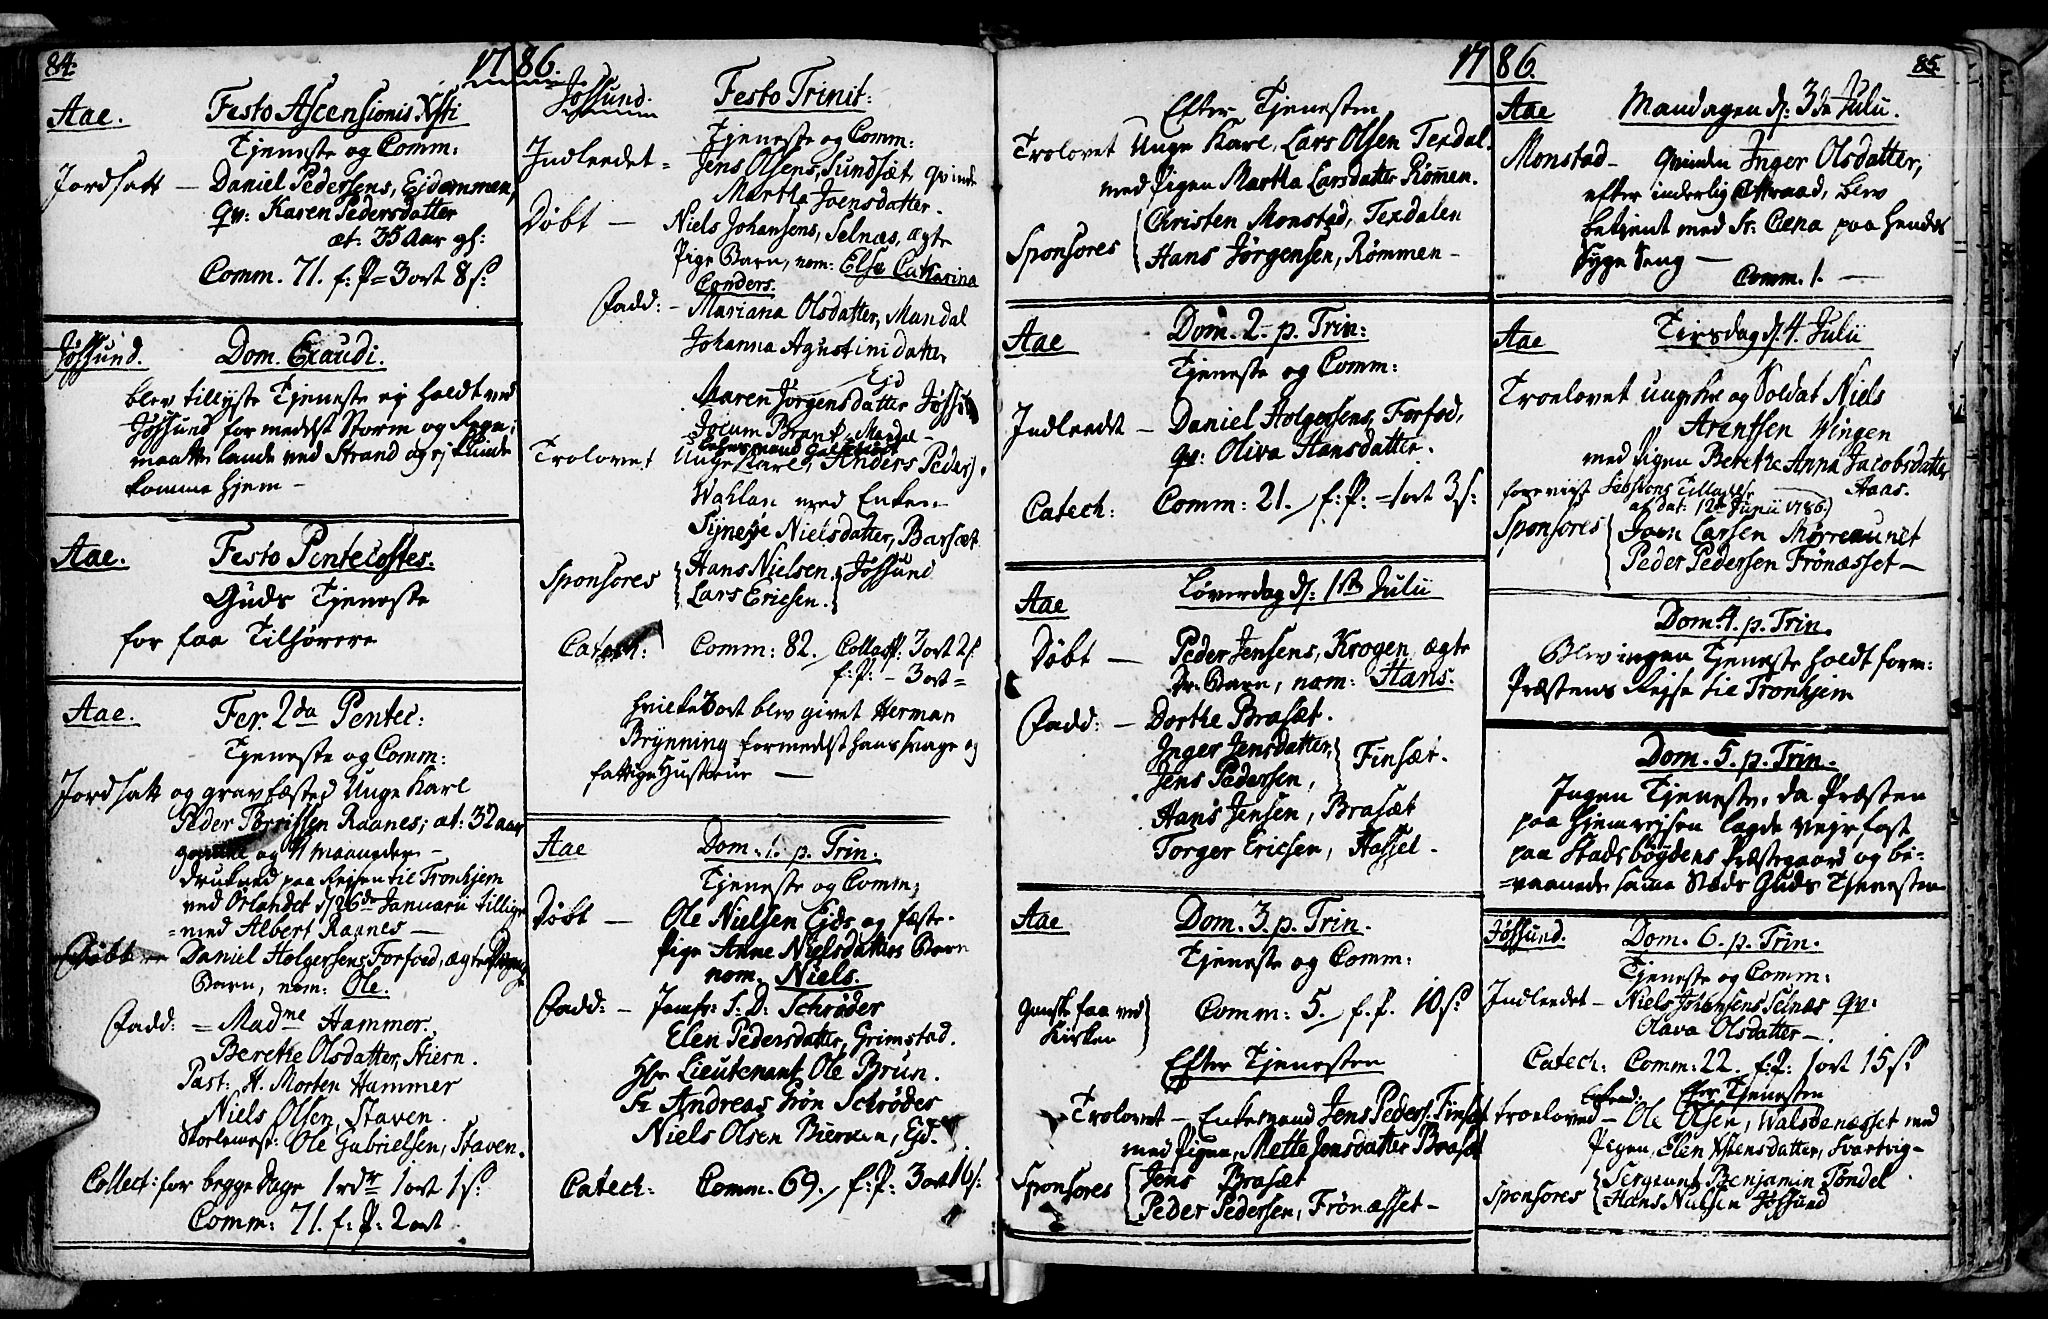 84.
1786.
Aae. Festo Ascensionis Xsti
Tjeneste og Comm:
Jordsatt — Daniel Pedersens, Ejdammen,
qv: Karen Pedersdatter
æt: 35 Aar gl:
Comm. 71. f: P= 3 ort 8 s:
Jøssund. Dom. Exaudi.
blev tillyste Tjeneste ej holdt ved
Jøssund formedelst Storm og
maatte lande ved Strand og ej kunde
komme hjem —
Aae. Festo Pentecostes.
Guds Tjeneste
for faa Tilhørere
Aae. Fer. 2da Pentec:
Tjeneste og Comm:
Jordsatt og gravfæsted Unge Karl
Peder Raanes; æt: 32 aar
og 11 maaneder —
drukned paa Rejsen til Tronhjem
ved Ørlandet 26de Januarii tillige
=med Albert Raanes —
Døbt — Daniel Holgersens Forfod, ægte
Barn, nom: Ole.
Fadd: = Madme Hammer.
Berethe Olsdatter, Stiern.
Past: H. Morten Hammer
Niels Olsen, Staven.
Ole Gabrielsen, Staven.
Collect: for begge Dage 1 rdr 1 ort 1 s:
Comm: 71. f: P: 2 ort.
Jøssund. Festo Trinit:
Tjeneste og Comm:
Indleedet = Jens Olsens, Sundsæt qvinde
Martha Joensdatter.
Døbt — Niels Johansens, Selnæs, ægte
Pige Barn, nom: Else Catharina
Conders.
Fadd: — Mariana Olsdatter, Mandal
Johanna Agustinidatter
Ejd
Maren Jørgensdatter Jøssund
Jocum Brant, Mandal —
Trolovet Unge Karl, Anders Peders:
Wallan med Enken
Nielsdatter, Barsæt
Sponsores Hans Nielsen. Jøssund
Lars Ericsen.
Catech: Comm: 82. Collect: 3 ort 2 s
f: P: — 3 ort =
hvilke 3 ort blev givet Herman
Brynning formedelst hans svage og
fattige Hustrue —
Aae Dom. 1. p. Trin.
Tjeneste og Comm:
Døbt — Ole Nielsen Ejds og fæste-
Pige Anne Nielsdatters Barn
nom. Niels.
Fadd: — Jomfr: S: D: Schrøder
Elen Pedersdatter, Grimstad.
Hr Lieutenant Ole Brun.
Sr Andreas Grøn Schrøder
Niels Olsen Ejd.
Catech: Comm. 69. f: P: 3 ort 16 s:
1786.
85.
Efter Tjenesten
Trolovet Unge Karl, Lars Olsen Terdal.
med Pigen Martha Larsdatter Rømmen.
Sponsores Christen Monstad, Terdalen
Hans Jørgensen, Rømmen —
Aae Dom. 2. p. Trin:
Tjeneste og Comm:
Indleedt — Daniel Holgersens, Forfod,
qv: Oliva Hansdatter.
Catech: Comm: 21. f: P: = 1 ort 3 s:
Aae Løverdag d: 1ste Julii
Døbt — Peder Jensens, Krogen, ægte
Dr. Barn, nom: Hans.
Fadd: — Dorthe Brasæt.
Inger Jensdatter, Finsæt.
Jens Pedersen,
Hans Jensen, Brasæt
Torger Ericsen, Hassel.
Aae Dom. 3. p. Trin.
Tjeneste og Comm:
Ganske faa ved Kirken Comm: 5. f. P. 10 s:
Efter Tjenesten
Trolovet — Enkemand Jens Peders: Finsæt
med Pigen, Mette Jonsdatter Brasæt
Sponsores Jens Brasæt
Peder Pedersen, Frønæsset —
Aae Mandagen d: 3de Julii.
Monstad — Qvinden Inger Olsdatter,
efter inderlig Attraad, blev
betjent med St: Cena paa hendes
Syge Seng —
Comm. 1. —
Aae Tirsdag d: 4. Julii
Troelovet ungKr og Soldat Niels
Arentsen Wingen
med Pigen Berethe Anna Jacobsdatter
Aaas.
foreviist Sessions Tilladelse
af dat: 12te Junii 1786.
Sponsores Joen Larsen Mørreaunet
Peder Pedersen Frønæsset —
Dom. 4. p. Trin.
Blev ingen Tjeneste holdt form:
Præstens Rejse til Tronhjem
Dom. 5. p. Trin.
Ingen Tjeneste, da Præsten
paa hjemrejsen lagde vejrfast
paa Stadsbøgdens Præstegaard og bi-
=vaanede samme Stæds Guds Tjenesten
Jøssund. Dom. 6. p. Trin.
Tjeneste og Comm:
Indleedet — Niels Johansens Selnæs qv:
Olava Olsdatter —
Catech: Comm: 22. f: P: 1 ort 15 s:
Efter Tjenesten
troeloved — Ole Olsen, Walsøenæsset med
Pigen, Elen datter, Svartvig —
Sponsores Sergeant Benjamin Tøndel
Hans Nielsen Jøssund